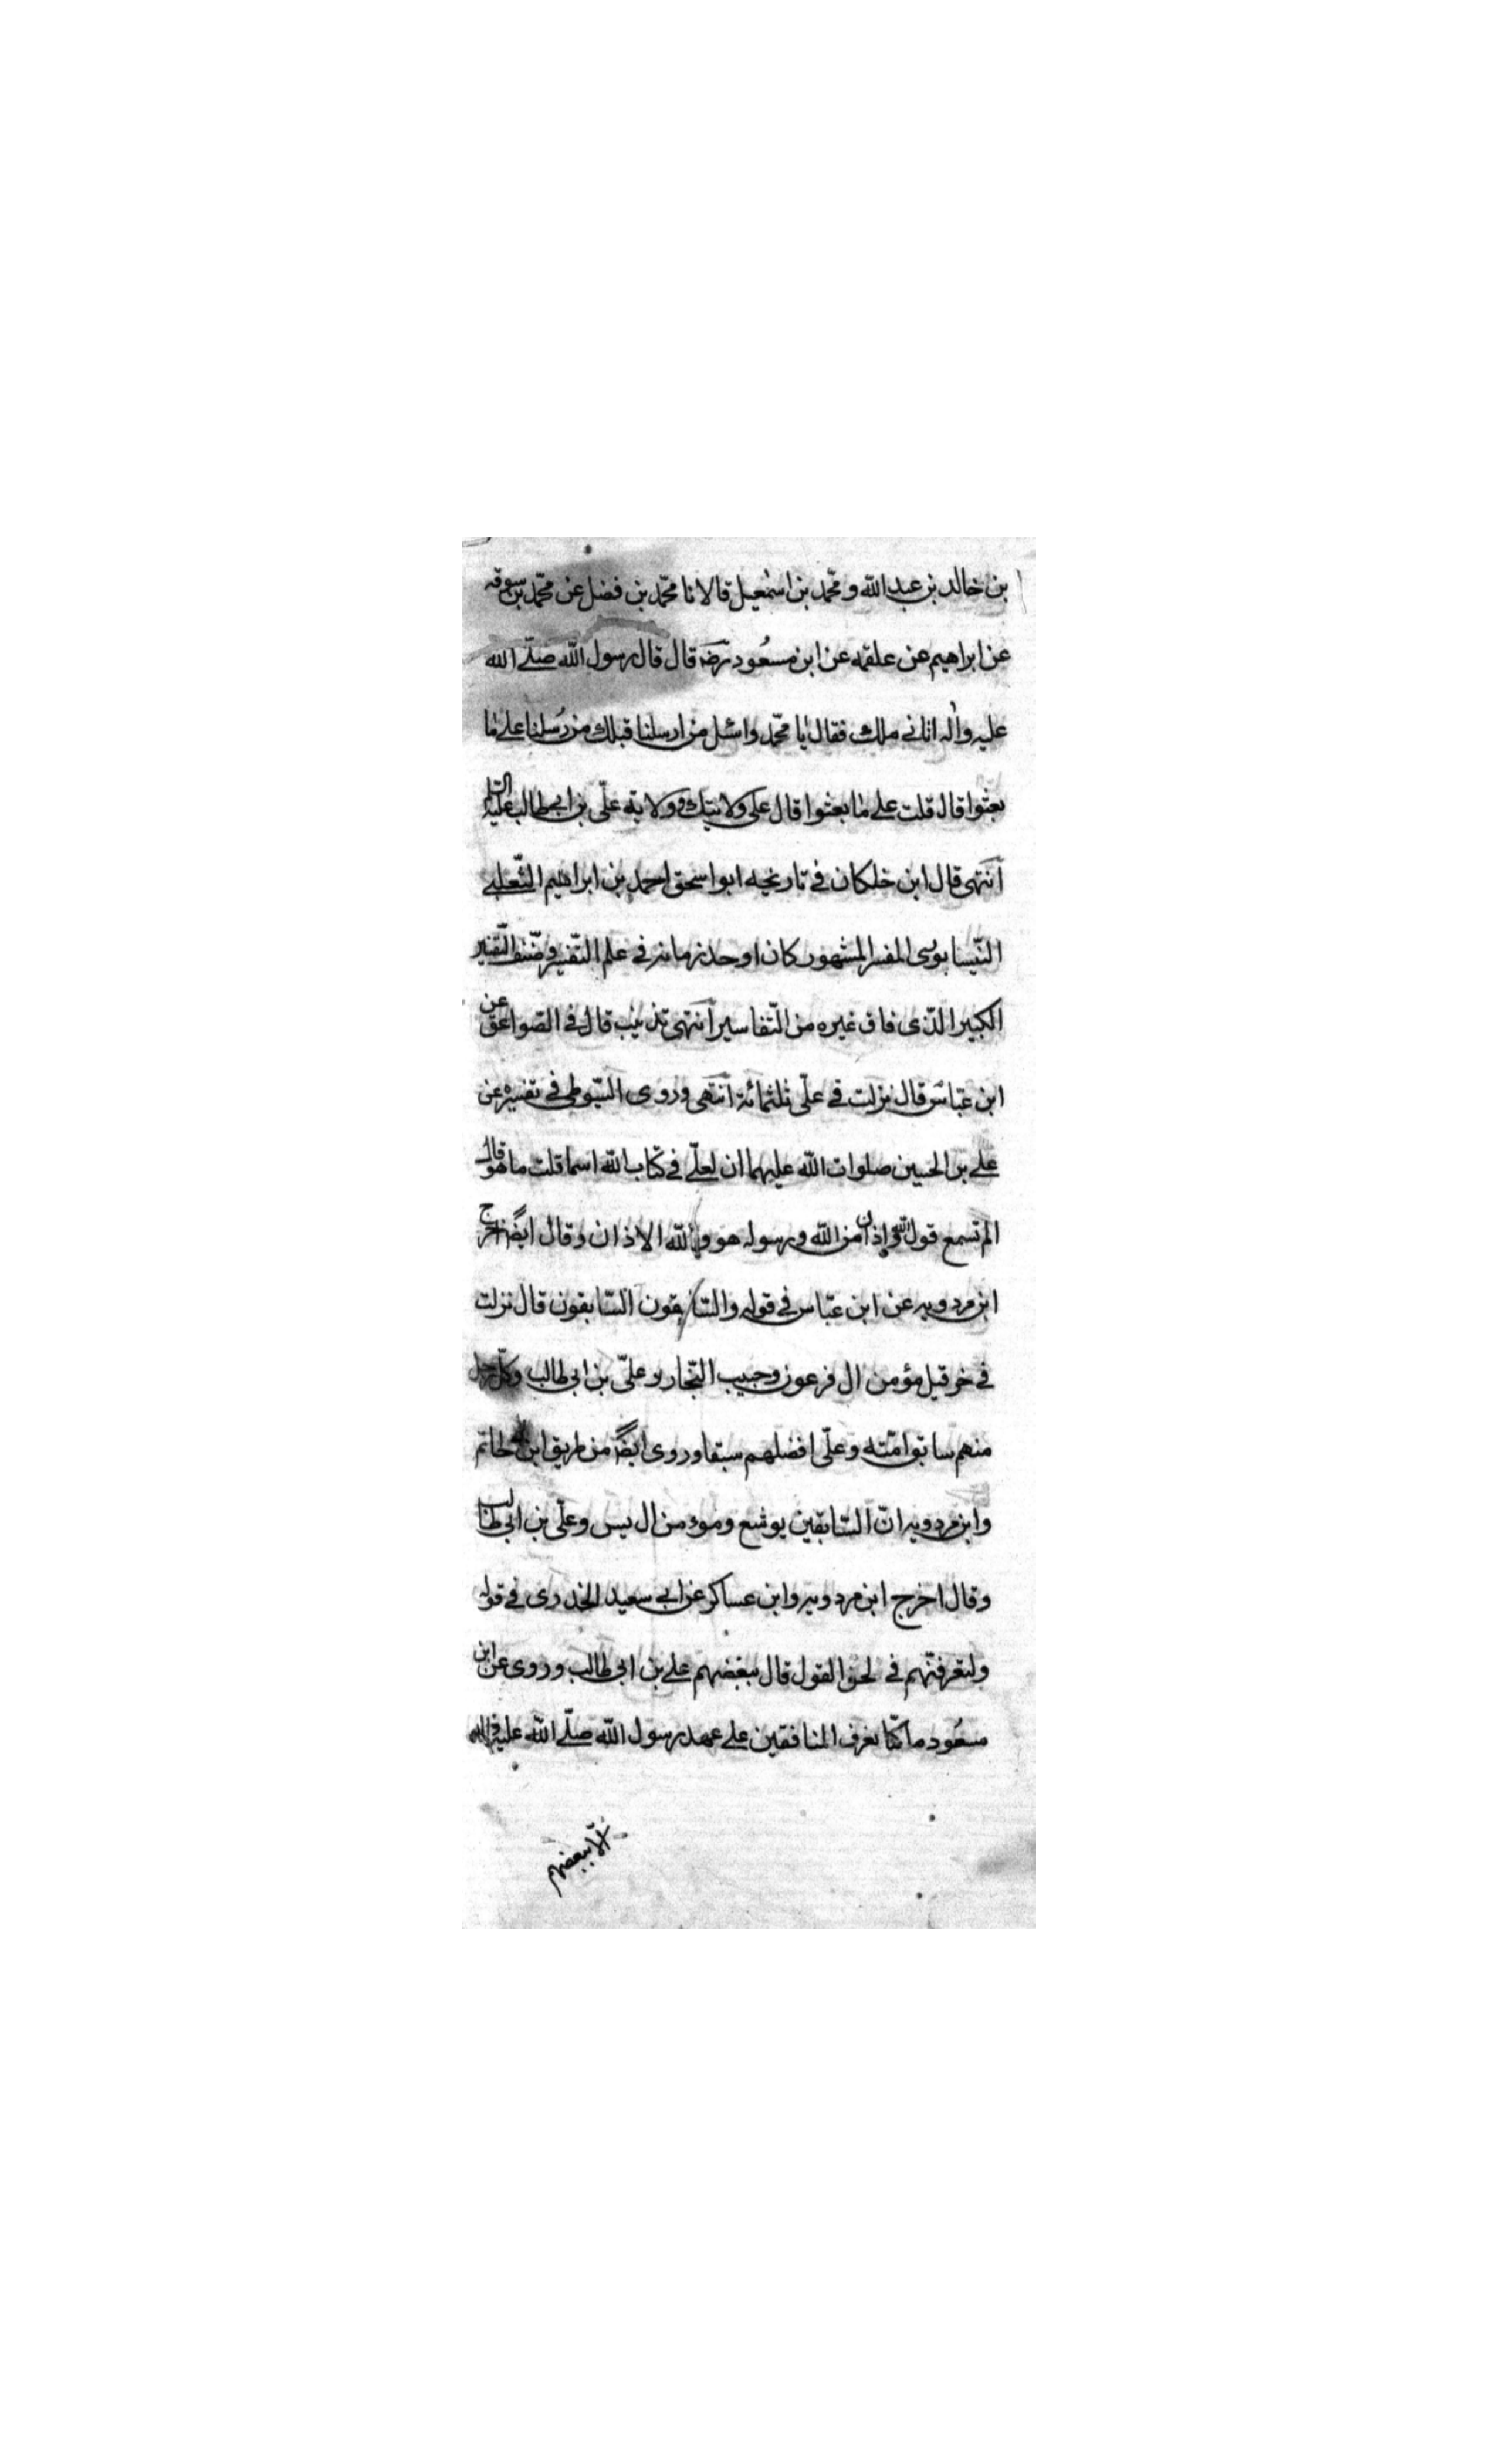 بن خالد بن عبد الله و محمّد بن اسمٰعيل قالا نا محمّد بن فضل عن محمّد بن سوقه
عن ابراهيم عن علقمه عن ابن مسعُود رضه قال قال رسول الله صلّى الله
عليه واٰله اتانى ملك فقال يٰا محمّد واسئل من ارسلنا قبلك من رُسلنا على مٰا
بعثوا قال قلت على مٰا بعثوا قال على ولايتك وولاية علّى بن ابى طالب عليه السّلم
انتهى قال ابن خلكان فى تاريخه ابو اسحق احمد بن ابراهيم الثّعلبى
النّيسابورى المفسر المشهور كان اوحد زمانه فى علم التّفسير وصنّف التّفسير
الكبير الّذى فاق غيره من التّفاسير انتهى تذنيب قال فى الصّواعق عن
ابن عبّاس قال نزلت فى علّى ثلثمائة انتهى وروى السّيوطى فى تفسيره عن
على بن الحسين صلوات الله عليهما ان لعلّى فى كتاب الله اسما قلت ما هو قال
الم تسمع قول الله واذان من الله ورسوله هو والله الاذان وقال ايضًا اخرج
ابن مردويه عن ابن عبّاس فى قوله والسّابقون السّابقون قال نزلت
فى خرقيل مؤمن ال فرعون وحبيب النّجار وعلىّ بن ابى طالب وكلّ رجل
منهم سابق امّته وعلّى افضلهم سبقا وروى ايضًا من طريق ابن ابى حاتم
وابن مردويه انّ السّابقين يوشع وموء من ال يس وعلّى بن ابى طالب
وقال اخرج ابن مردويه وابن عساكر عن ابى سعيد الخدرى فى قوله
ولتعرفنّهم فى لحن القول قال ببغضهم على بن ابى طالب وروى عن ابن
مسعُود ما كنّا نعرف المنافقين على عهد رسول الله صلّى الله عليه واله
الّا ببغضهم